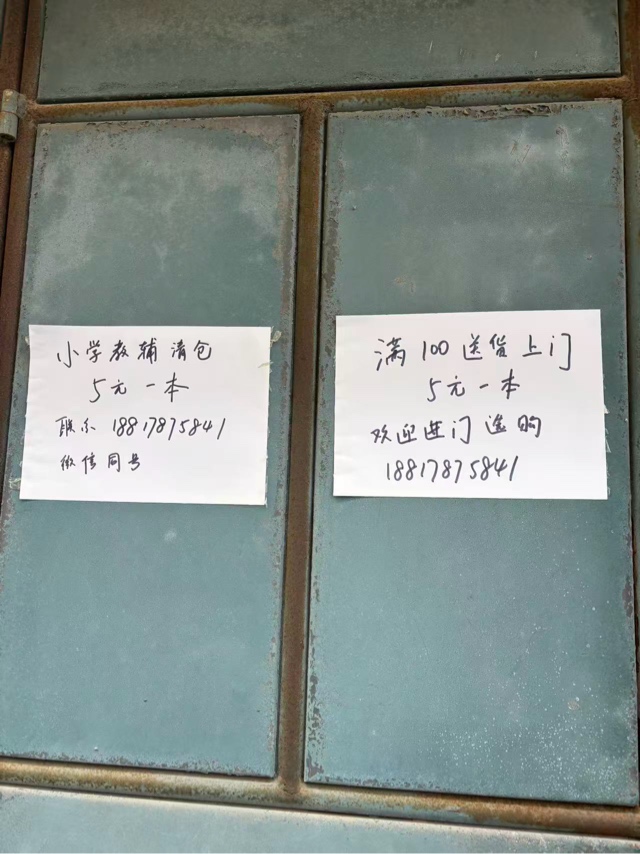 小学教辅清仓
5元一本
联系 18817875841
微信同号
满100送货上门
5元一本
欢迎进门选购
18817875841